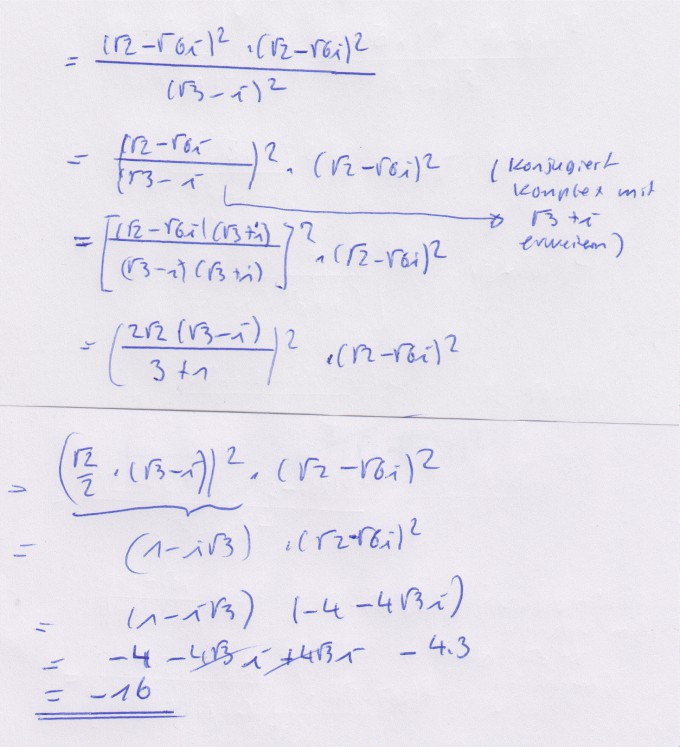 = (√2-√6i)² · (√2-√6i)² / (√3-i)²
= ((√2-√6i / (√3-i)² · (√2-√6i)² (Konjugiert
Komplex mit
√3+i
erweitern)
= [(√2-√6i)(√3+i) / (√3-i)(√3+i)]² · (√2-√6i)²
= (2√2(√3-i) / 3+1)² · (√2-√6i)²
= (√2/2 · (√3-i))² · (√2-√6i)²
= (1-i√3) · (√2-√6i)²
= (1-i√3) (-4-4√3i)
= -4 -4√3i +4√3i -4·3
= -16